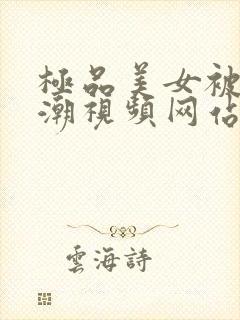 極品美女被
潮視頻网佔
雲海詩